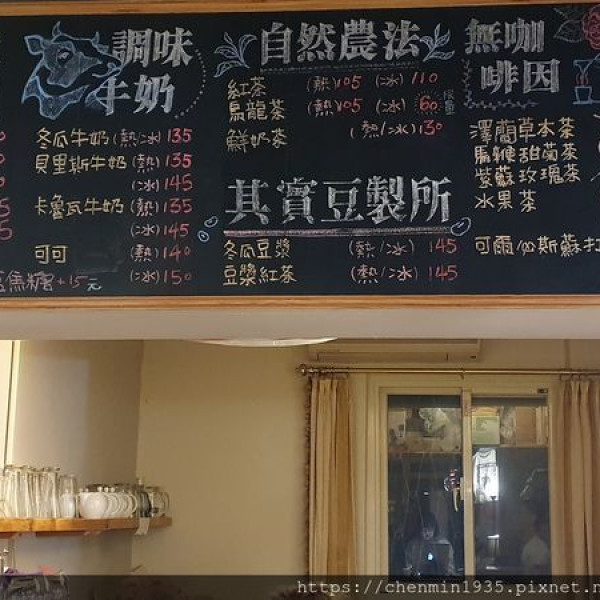 調味
牛奶
冬瓜牛奶(熱/冰) 135
貝里斯牛奶(熱) 135
(冰) 145
卡魯瓦牛奶(熱) 135
(冰) 145
可可 (熱) 140
(冰) 150
焦糖+15元
自然農法
紅茶 (熱) 105 (冰) 110
烏龍茶 (熱) 105 (冰) 60
鮮奶茶 (熱/冰) 130
其實豆製所
冬瓜豆漿 (熱/冰) 145
豆漿紅茶 (熱/冰) 145
無咖
啡因
澤蘭草本茶
馬鞭甜菊茶
紫蘇玫瑰茶
水果茶
可爾必斯蘇打
https://chenmin1935.pixnet.n